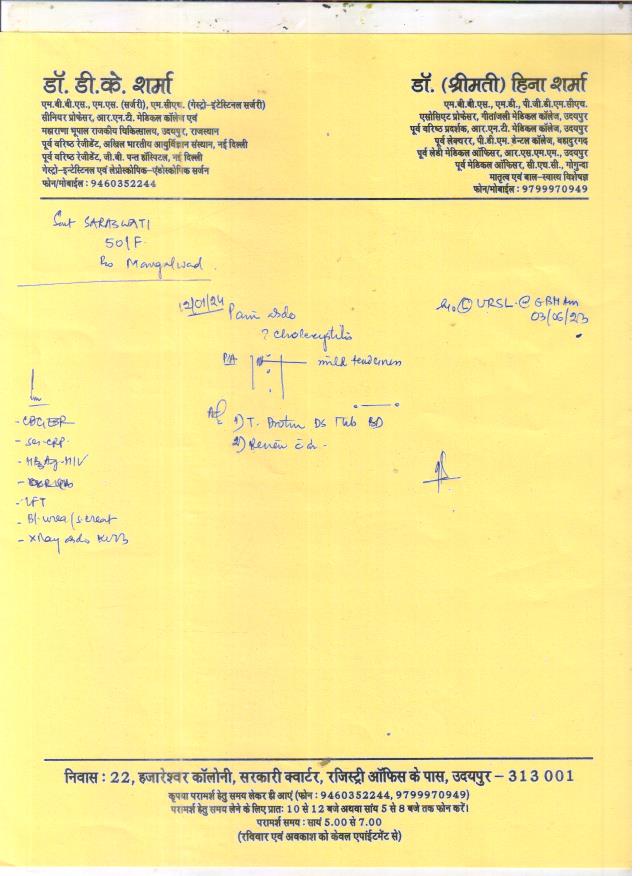 डॉ. डी.के. शर्मा
एम.बी.बी.एस., एम.एस. (सर्जरी), एम.सीएच. (गेस्ट्रो-इंटेस्टिनल सर्जरी)
सीनियर प्रोफेसर, आर.एन.टी. मेडिकल कॉलेज एवं
महाराणा भूपाल राजकीय चिकित्सालय, उदयपुर, राजस्थान
पूर्व वरिष्ठ रेजीडेंट, अखिल भारतीय आयुर्विज्ञान संस्थान, नई दिल्ली
पूर्व वरिष्ठ रेजीडेंट, जी.बी. पन्त हॉस्पिटल, नई दिल्ली
गेस्ट्रो-इन्टेस्टिनल एवं लेप्रोस्कोपिक-एंडोस्कोपिक सर्जन
फोन/मोबाईल : 9460352244
डॉ. (श्रीमती) हिना शर्मा
एम.बी.बी.एस., एम.डी., पी.जी.डी.एम.सीएच.
एसोसिएट प्रोफेसर, गीतांजली मेडिकल कॉलेज, उदयपुर
पूर्व वरिष्ठ प्रदर्शक, आर.एन.टी. मेडिकल कॉलेज, उदयपुर
पूर्व लेक्चरर, पी.डी.एम. डेन्टल कॉलेज, बहादुरगढ़
पूर्व लेडी मेडिकल ऑफिसर, आर.एस.एम.एम., उदयपुर
पूर्व मेडिकल ऑफिसर, सी.एच.सी., गोगुन्दा
मातृत्व एवं बाल-स्वास्थ्य विशेषज्ञ
फोन/मोबाईल : 9799970949
Smt SARASWATI
50/F
R/o Mangalwad
12/01/24 Pain abdo
? cholecystitis
H/o (L) URSL @ GBH Am
03/06/23
P/A mild tenderness
1) T. DS Tab BD
2) Review c̄
- CBC/ESR
- Ser CRP
- HBsAg-HIV
- LFT
- Bl. urea / s. creat
- XRay abdo KUB
निवास : 22, हजारेश्वर कॉलोनी, सरकारी क्वार्टर, रजिस्ट्री ऑफिस के पास, उदयपुर - 313 001
कृपया परामर्श हेतु समय लेकर ही आएं (फोन : 9460352244, 9799970949)
परामर्श हेतु समय लेने के लिए प्रातः 10 से 12 बजे अथवा सांय 5 से 8 बजे तक फोन करें।
परामर्श समय : सायं 5.00 से 7.00
(रविवार एवं अवकाश को केवल एपाईंटमेंट से)